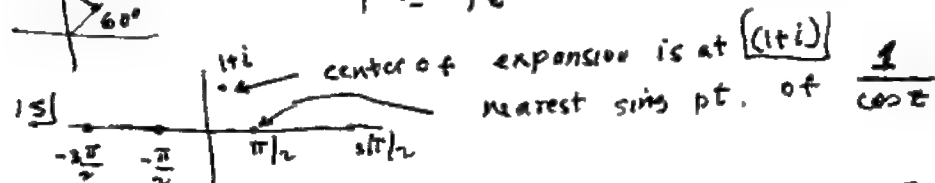 60°
1+i
center of expansion is at (1+i)
15]
nearest sing pt. of 1/cos z
-3π/2 -π/2 π/2 3π/2